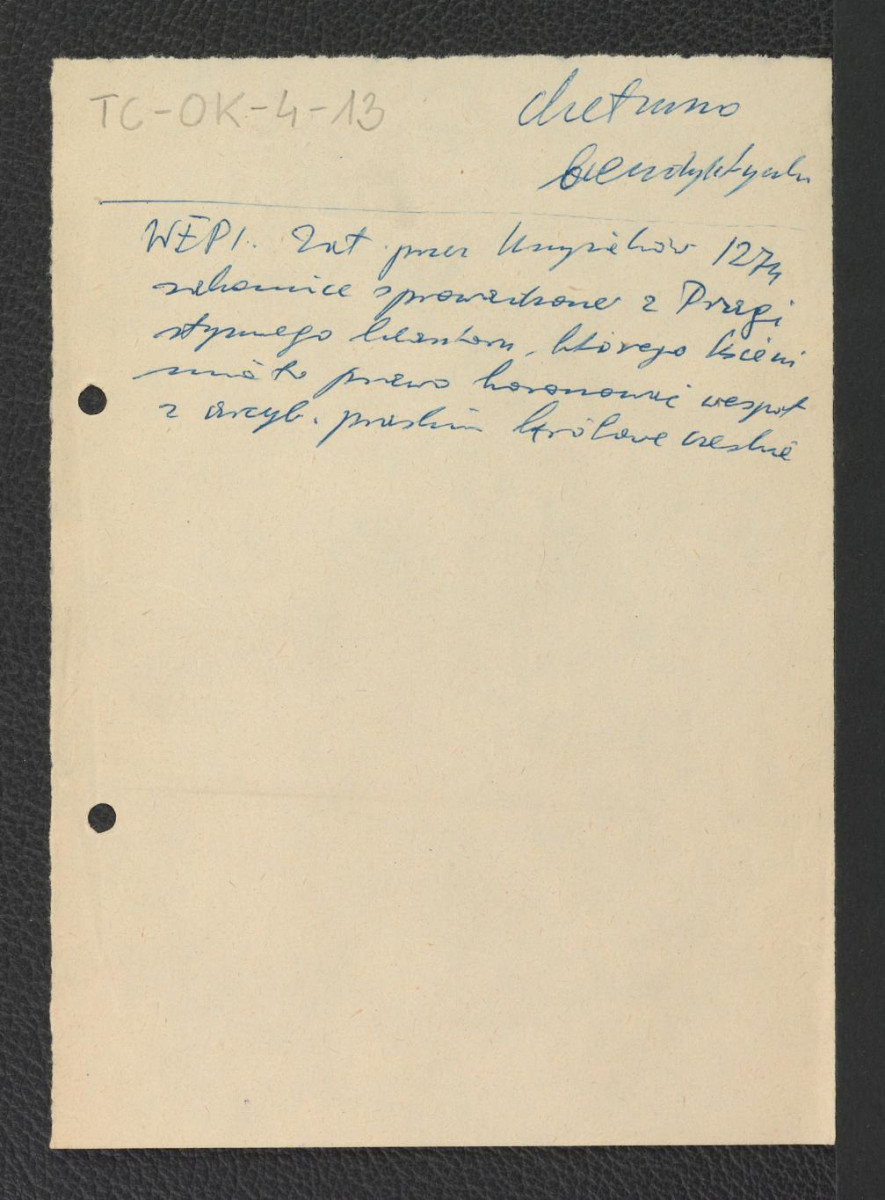 TC-OK-4-13
Chełmno
benedyktynki
WEPI. Zał. przez Krzyżaków 1274
zakonnice sprowadzone z Pragi
słynnego klasztoru, którego ksieni
miała prawo koronować wespół
z arcyb. praskim królowe czeskie